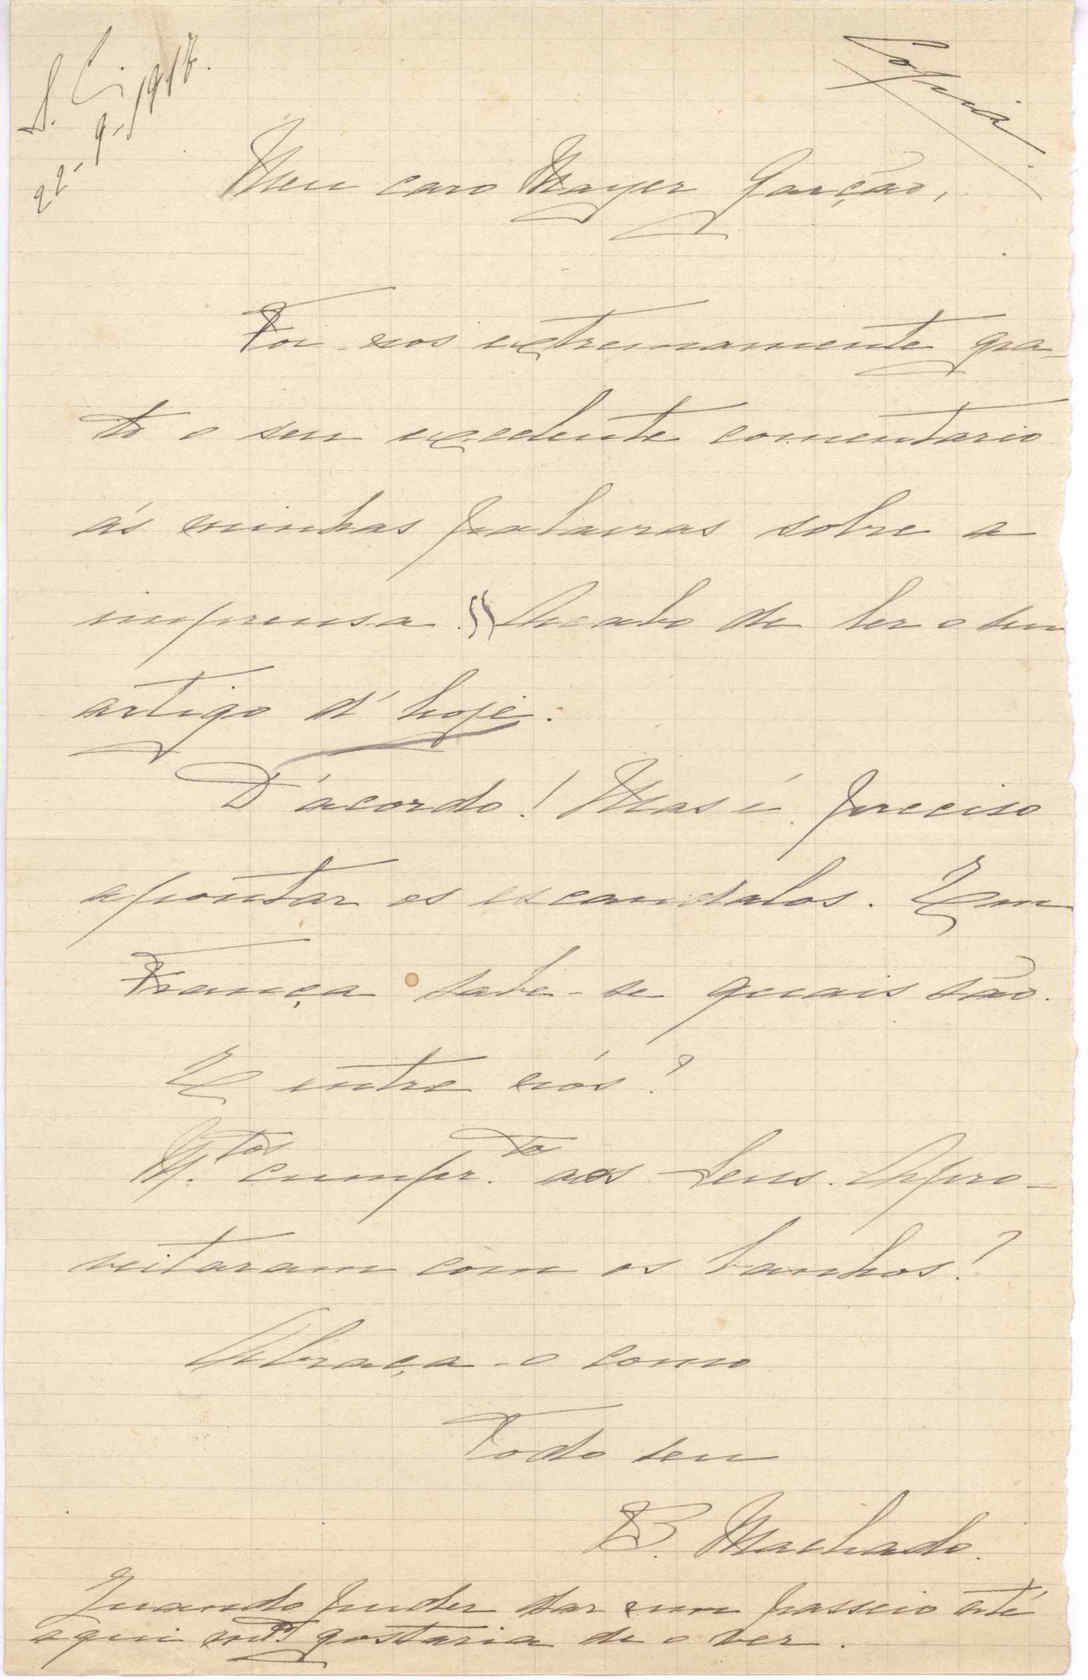 Copia
22-9-1917.
Meu caro Mayer Garção,
Foi-nos extremamente gra-
to o seu excelente comentario
ás minhas palavras sobre a
imprensa. Acabo de ler o seu
artigo d'hoje.
D'acordo! Mas é preciso
apontar os escandalos. Em
França sabe-se quais são.
E entre nós?
M.tos cumpr.to aos seus. Apro-
veitaram com os banhos?
Abraça-o como
Todo seu
B. Machado.
Quando puder dar um passeio até
aqui mto gostaria de o ver.